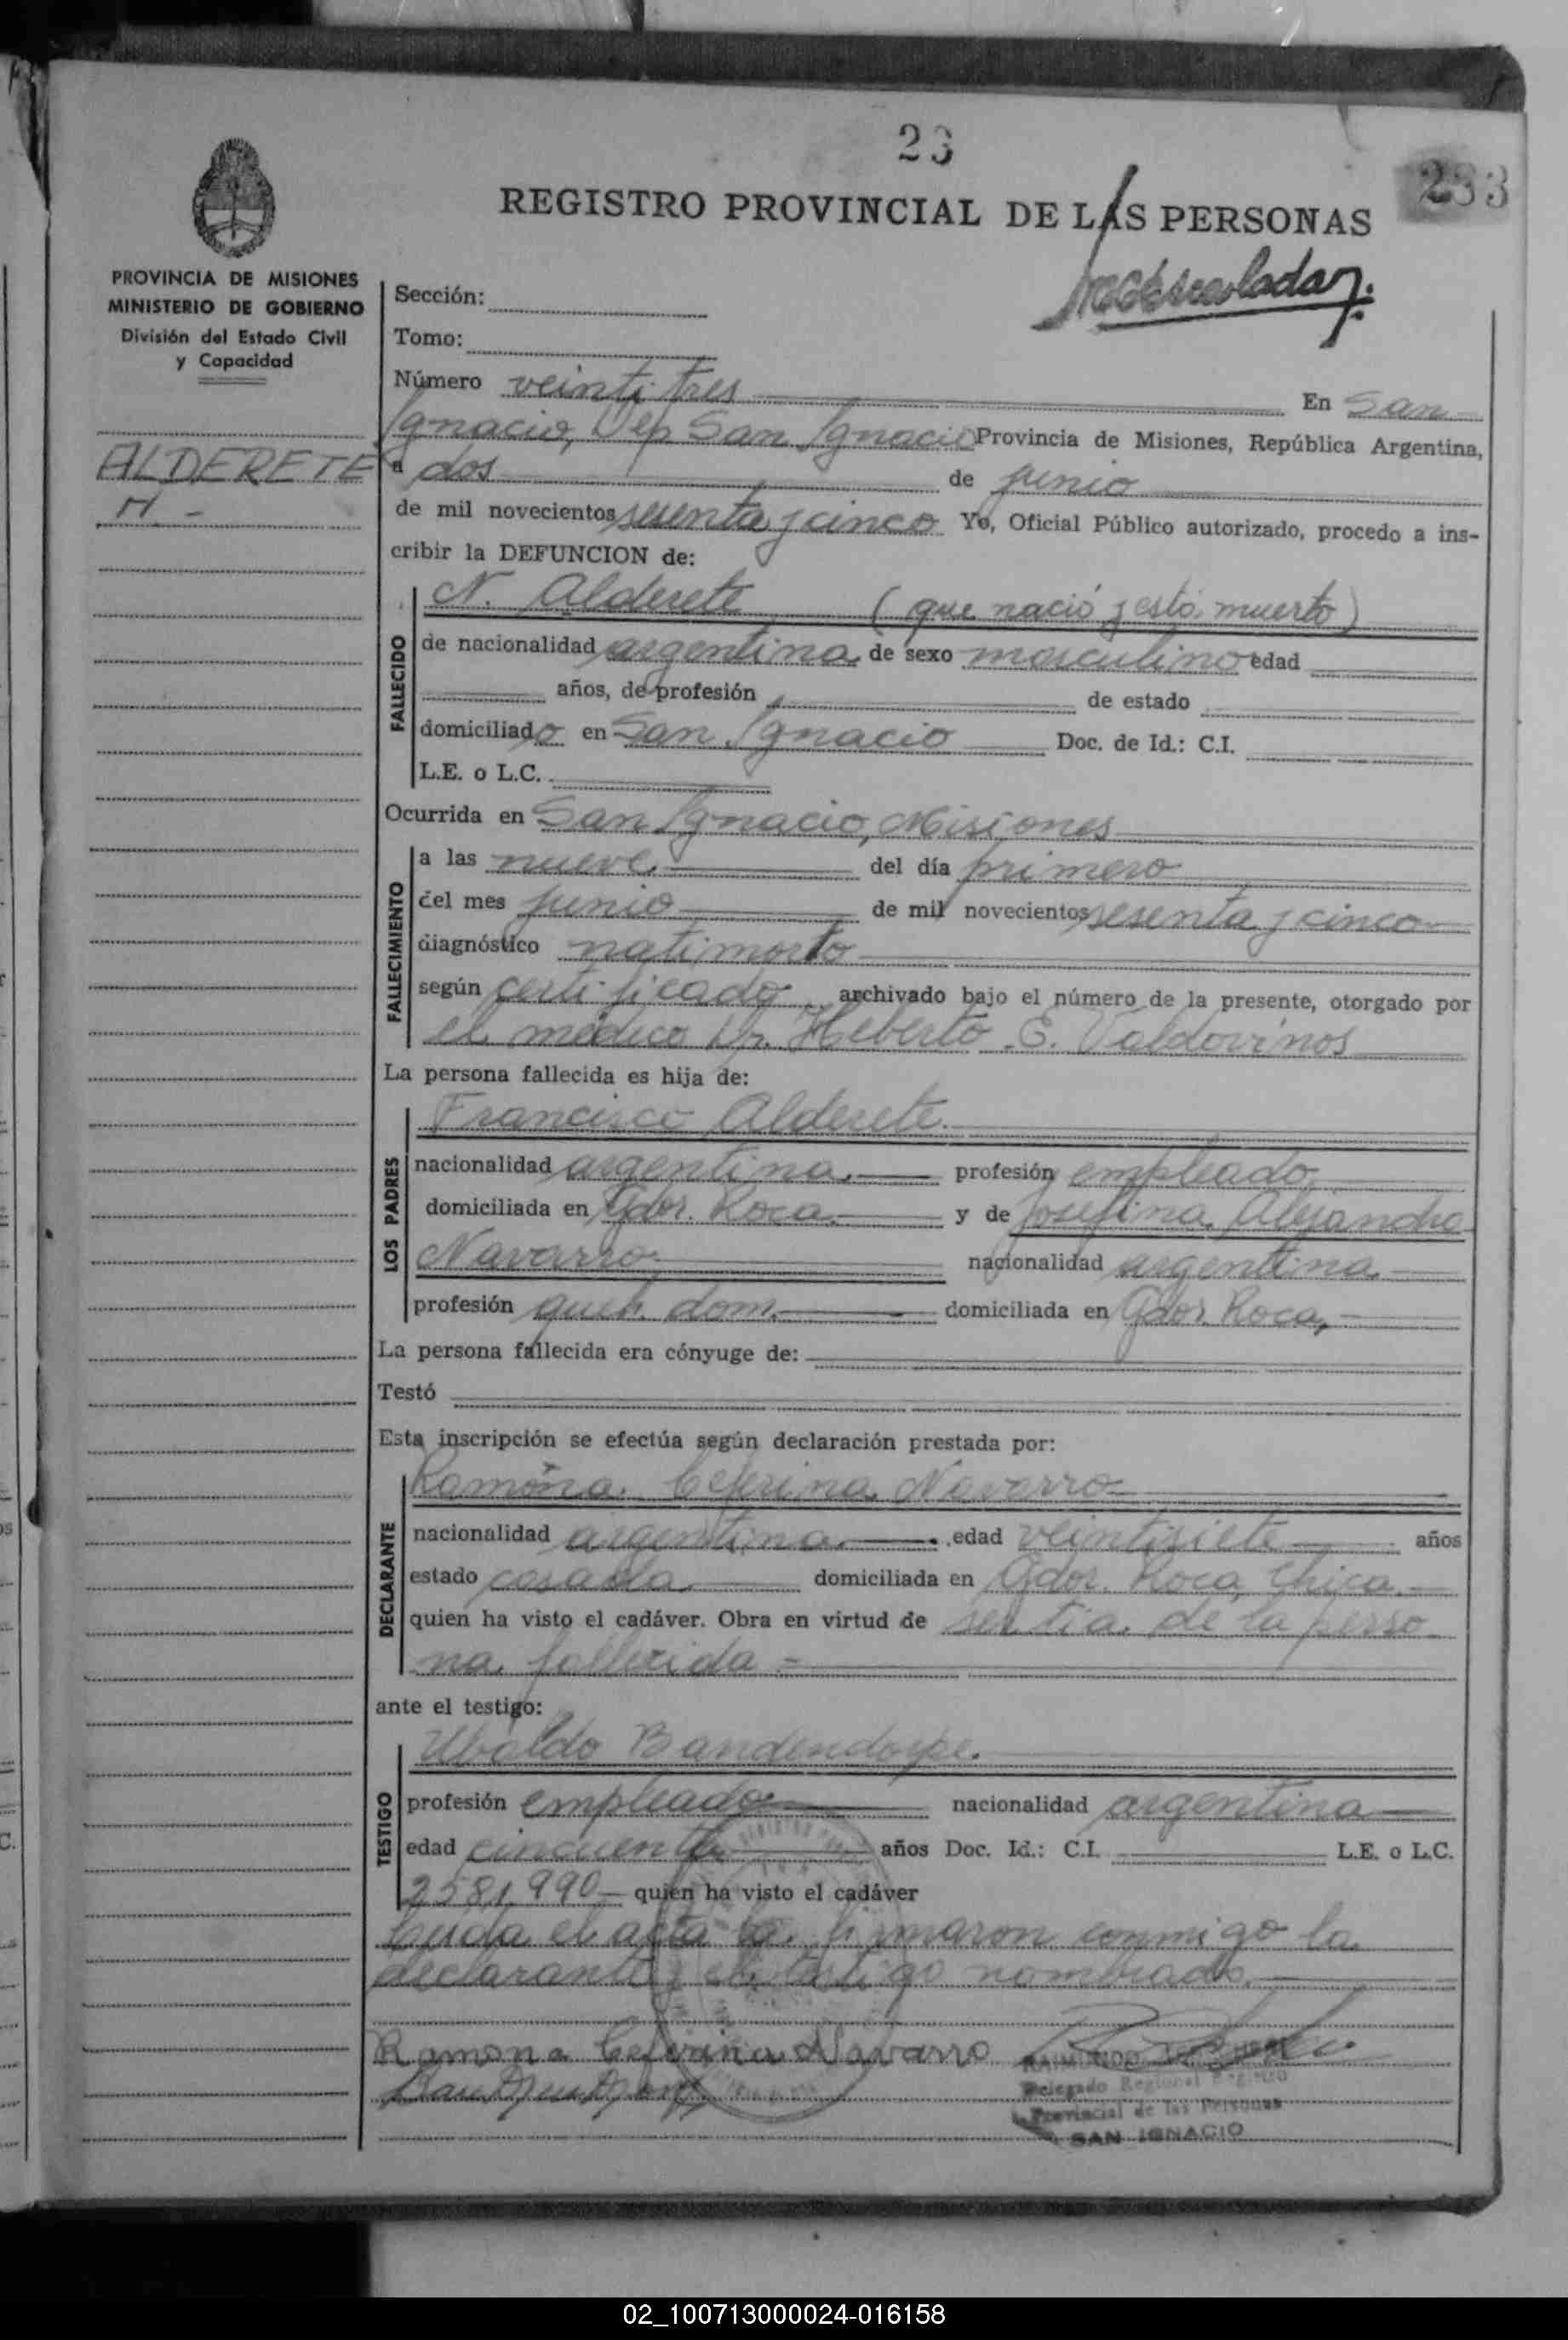 23
233
REGISTRO PROVINCIAL DE LAS PERSONAS
PROVINCIA DE MISIONES
MINISTERIO DE GOBIERNO
División del Estado Civil
y Capacidad
ALDERETE
N -
Sección:
Tomo:
Número veintitres En San
Ignacio, Dep San Ignacio Provincia de Misiones, República Argentina,
a dos de junio
de mil novecientos sesenta y cinco Yo, Oficial Público autorizado, procedo a ins-
cribir la DEFUNCION de:
FALLECIDO
N. Alderete (que nació y está muerto)
de nacionalidad argentina de sexo masculino edad
años, de profesión de estado
domiciliado en San Ignacio Doc. de Id.: C.I.
L.E. o L.C.
Ocurrida en San Ignacio, Misiones
FALLECIMIENTO
a las nueve. del día primero
del mes junio de mil novecientos sesenta y cinco
diagnóstico natimorto
según certificado archivado bajo el número de la presente, otorgado por
el médico Dr. Heberto E. Valdovinos
La persona fallecida es hija de:
LOS PADRES
Francisco Alderete.
nacionalidad argentina. profesión empleado
domiciliada en Gdor. Roca. y de Josefina Alejandra
Navarro. nacionalidad argentina.
profesión queh. dom. domiciliada en Gdor. Roca,
La persona fallecida era cónyuge de:
Testó
Esta inscripción se efectúa según declaración prestada por:
DECLARANTE
Ramona Ceferina Navarro
nacionalidad argentina edad veintisiete años
estado casada domiciliada en Gdor. Roca, Chica.
quien ha visto el cadáver. Obra en virtud de ser tia. de la perso
na fallecida -
ante el testigo:
TESTIGO
Ubaldo Bandendorpe.
profesión empleado nacionalidad argentina
edad cincuenta años Doc. Id.: C.I. L.E. o L.C.
2581.990 quien ha visto el cadáver
Leida el acta la firmaron conmigo la
declarante y el testigo nombrado.
Ramona Ceferina Navarro
RAIMUNDO
Delegado Regional Registro
Provincial de las Personas
SAN IGNACIO
02_100713000024-016158